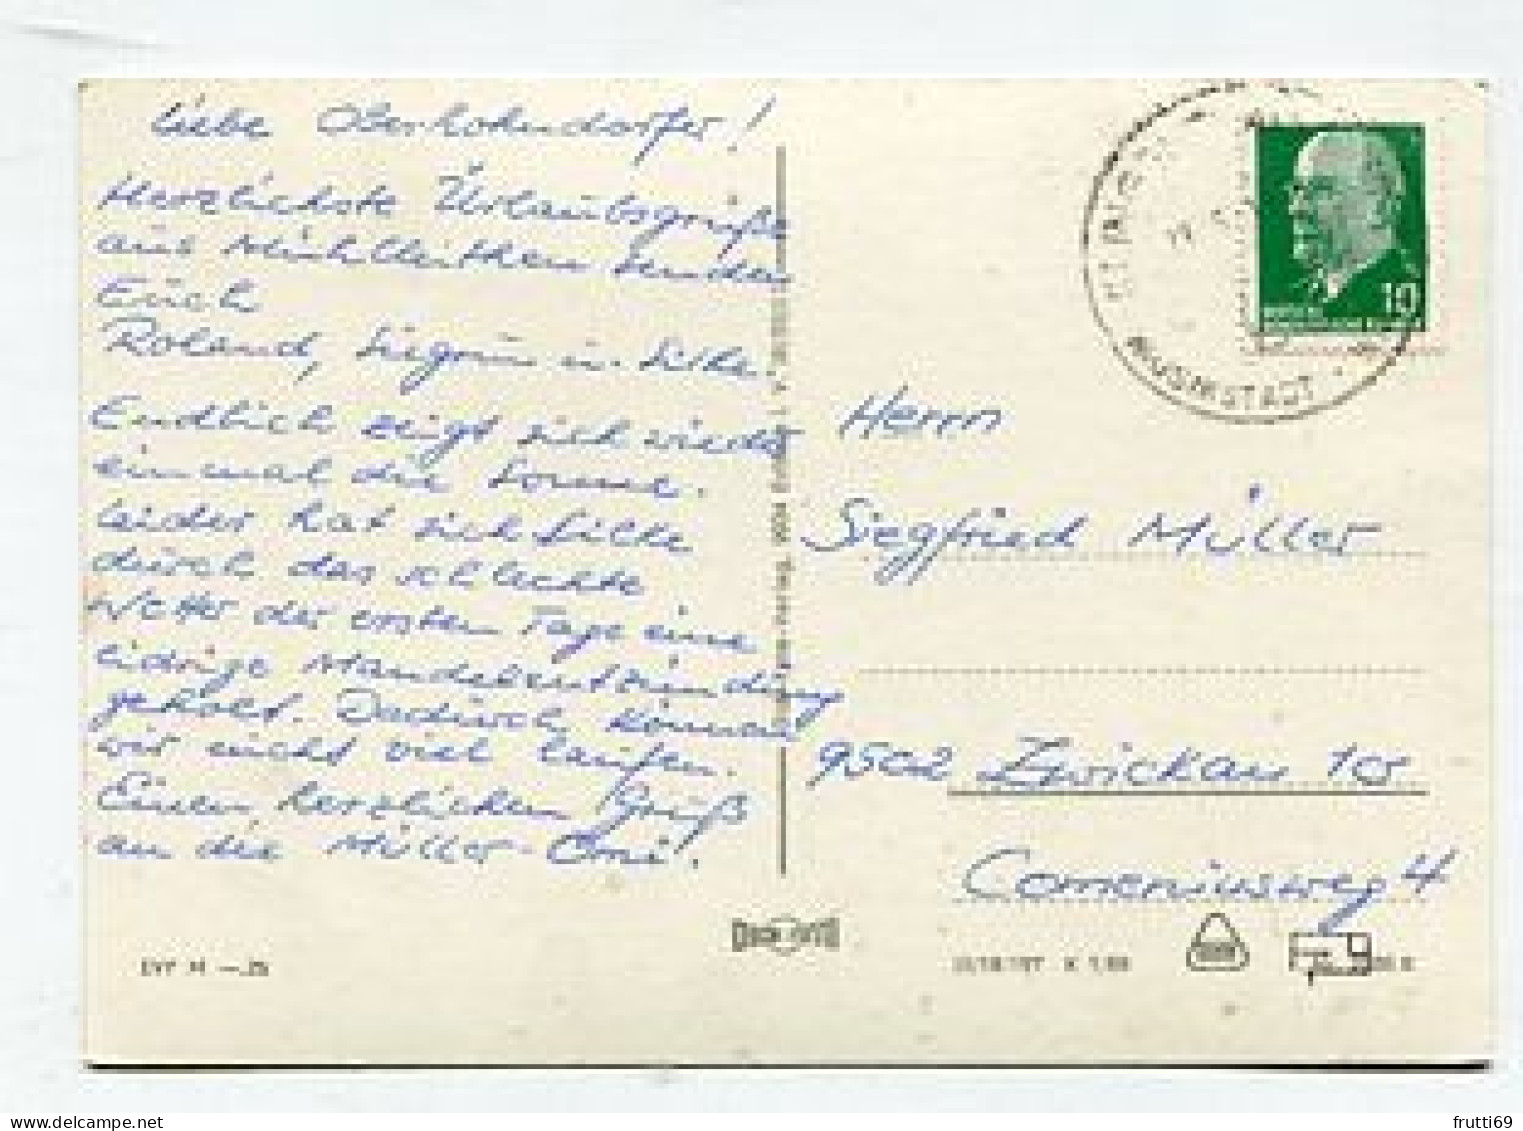 Liebe Oberhohndorfer!
Herzlichste Urlaubsgrüße
aus Mühlleithen senden
Euch
Roland, Siegrun u. Silke.
Endlich zeigt sich wieder
einmal die Sonne.
Leider hat sich Silke
durch das schlechte
Wetter der ersten Tage eine
eidrige Mandelentzündung
geholt. Dadurch können
wir nicht viel laufen.
Einen herzlichen Gruß
an die Müller-Omi!
Herrn
Siegfried Müller
9502 Zwickau 10
Comeniusweg 4
10
MUSIKSTADT
EVP M -.25
frutti69